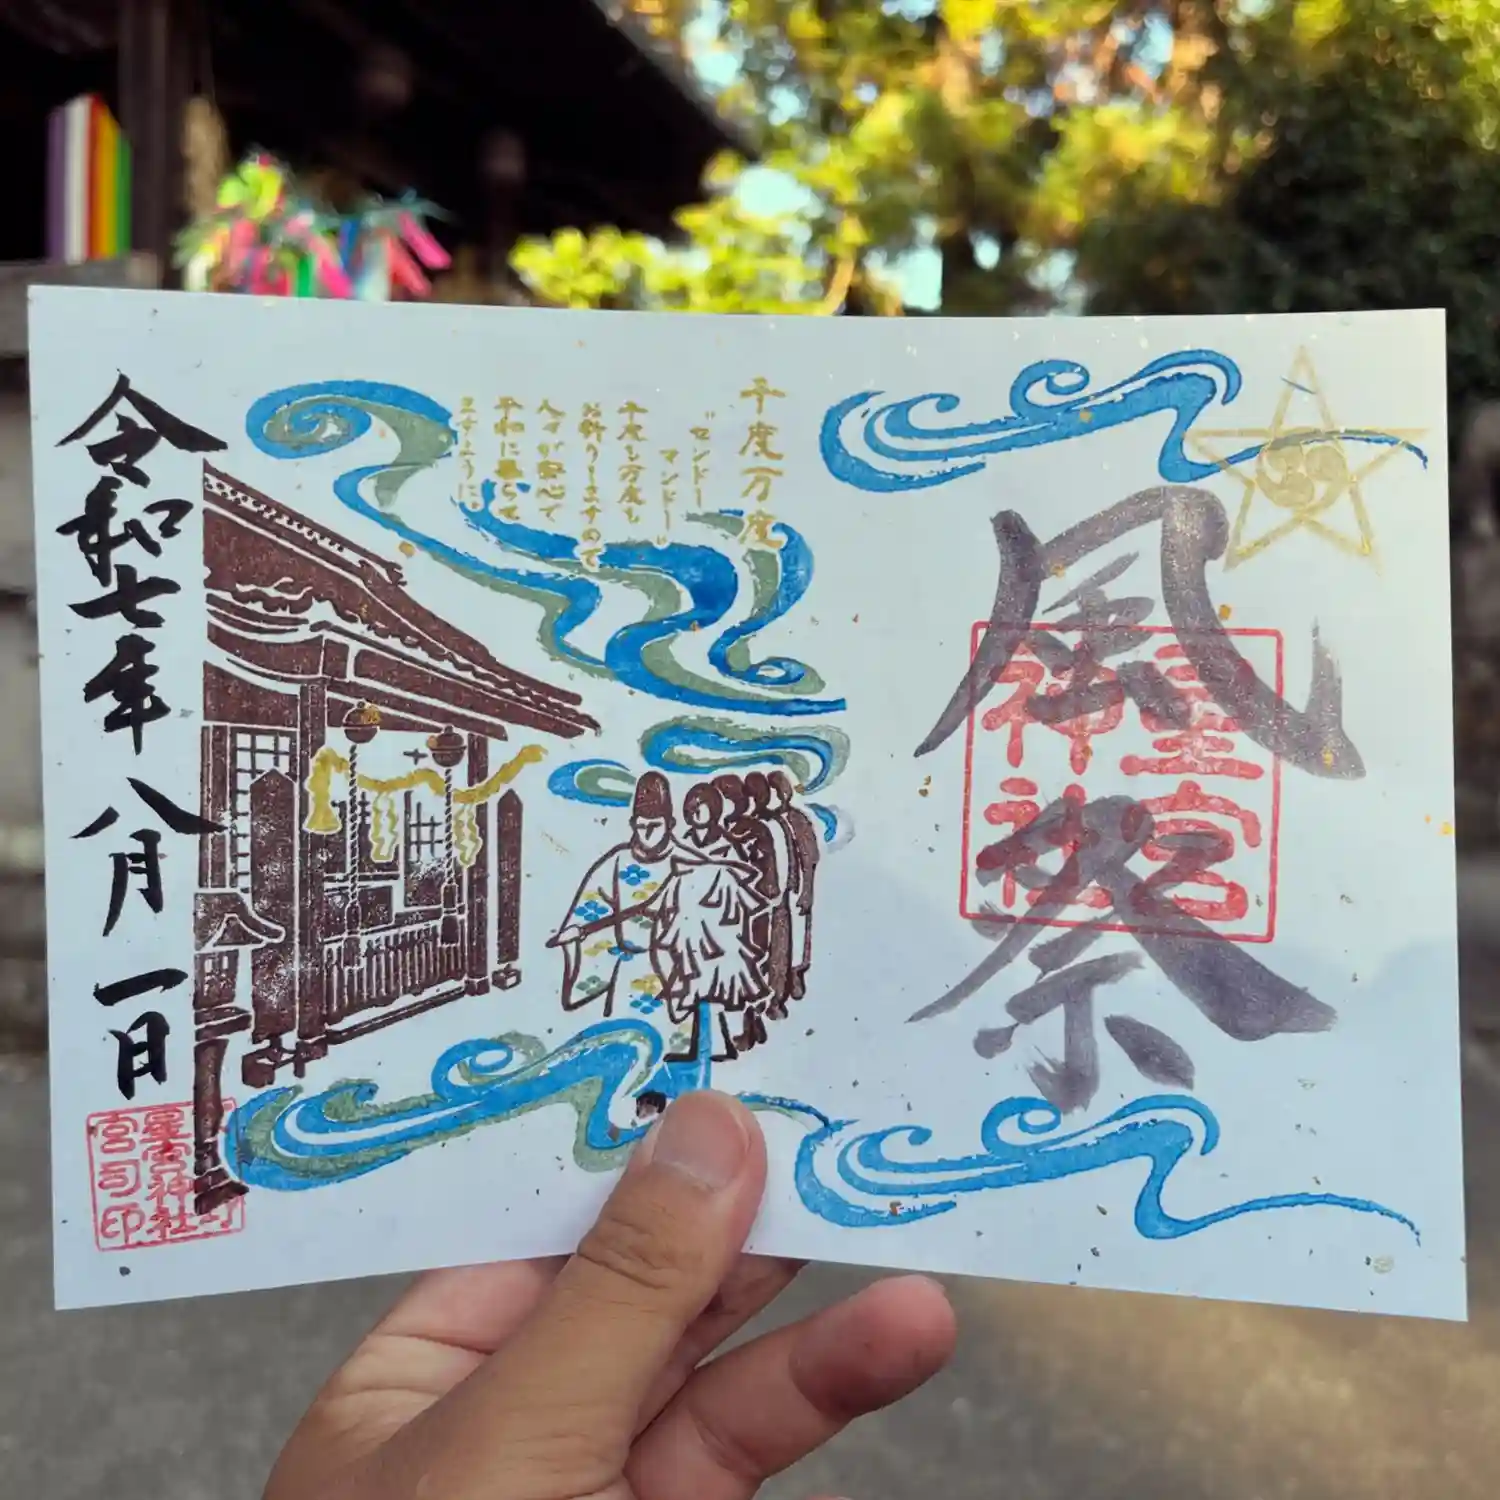 風祭
星宮
神社
千度万度
"センドー
マンドー"
千度も万度も
お祈りしますので
人々が安心て
平和に暮らせ
ますように。
令和七年八月一日
星宮神社
宮司印